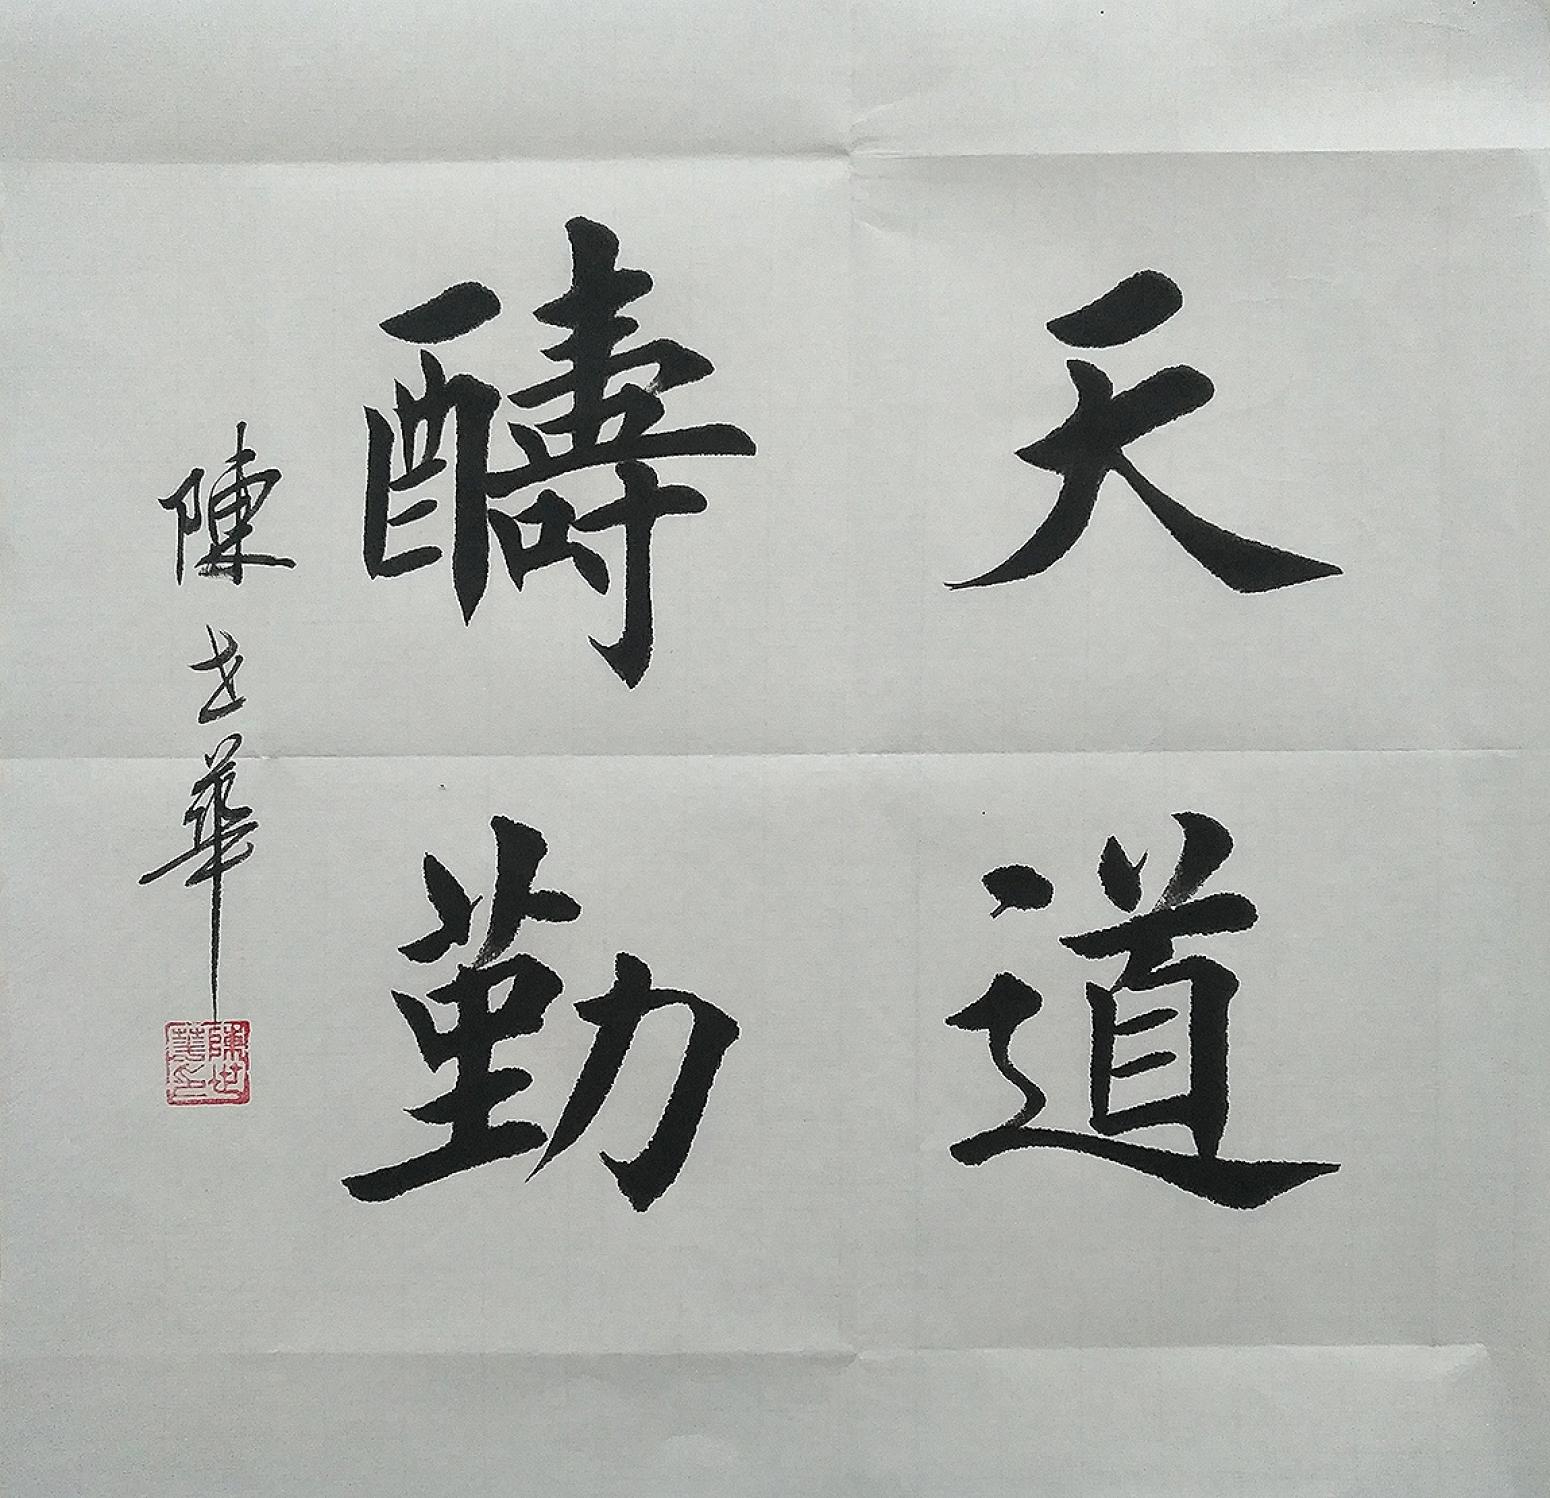 天道
醻勤
陳世華
陳世華印